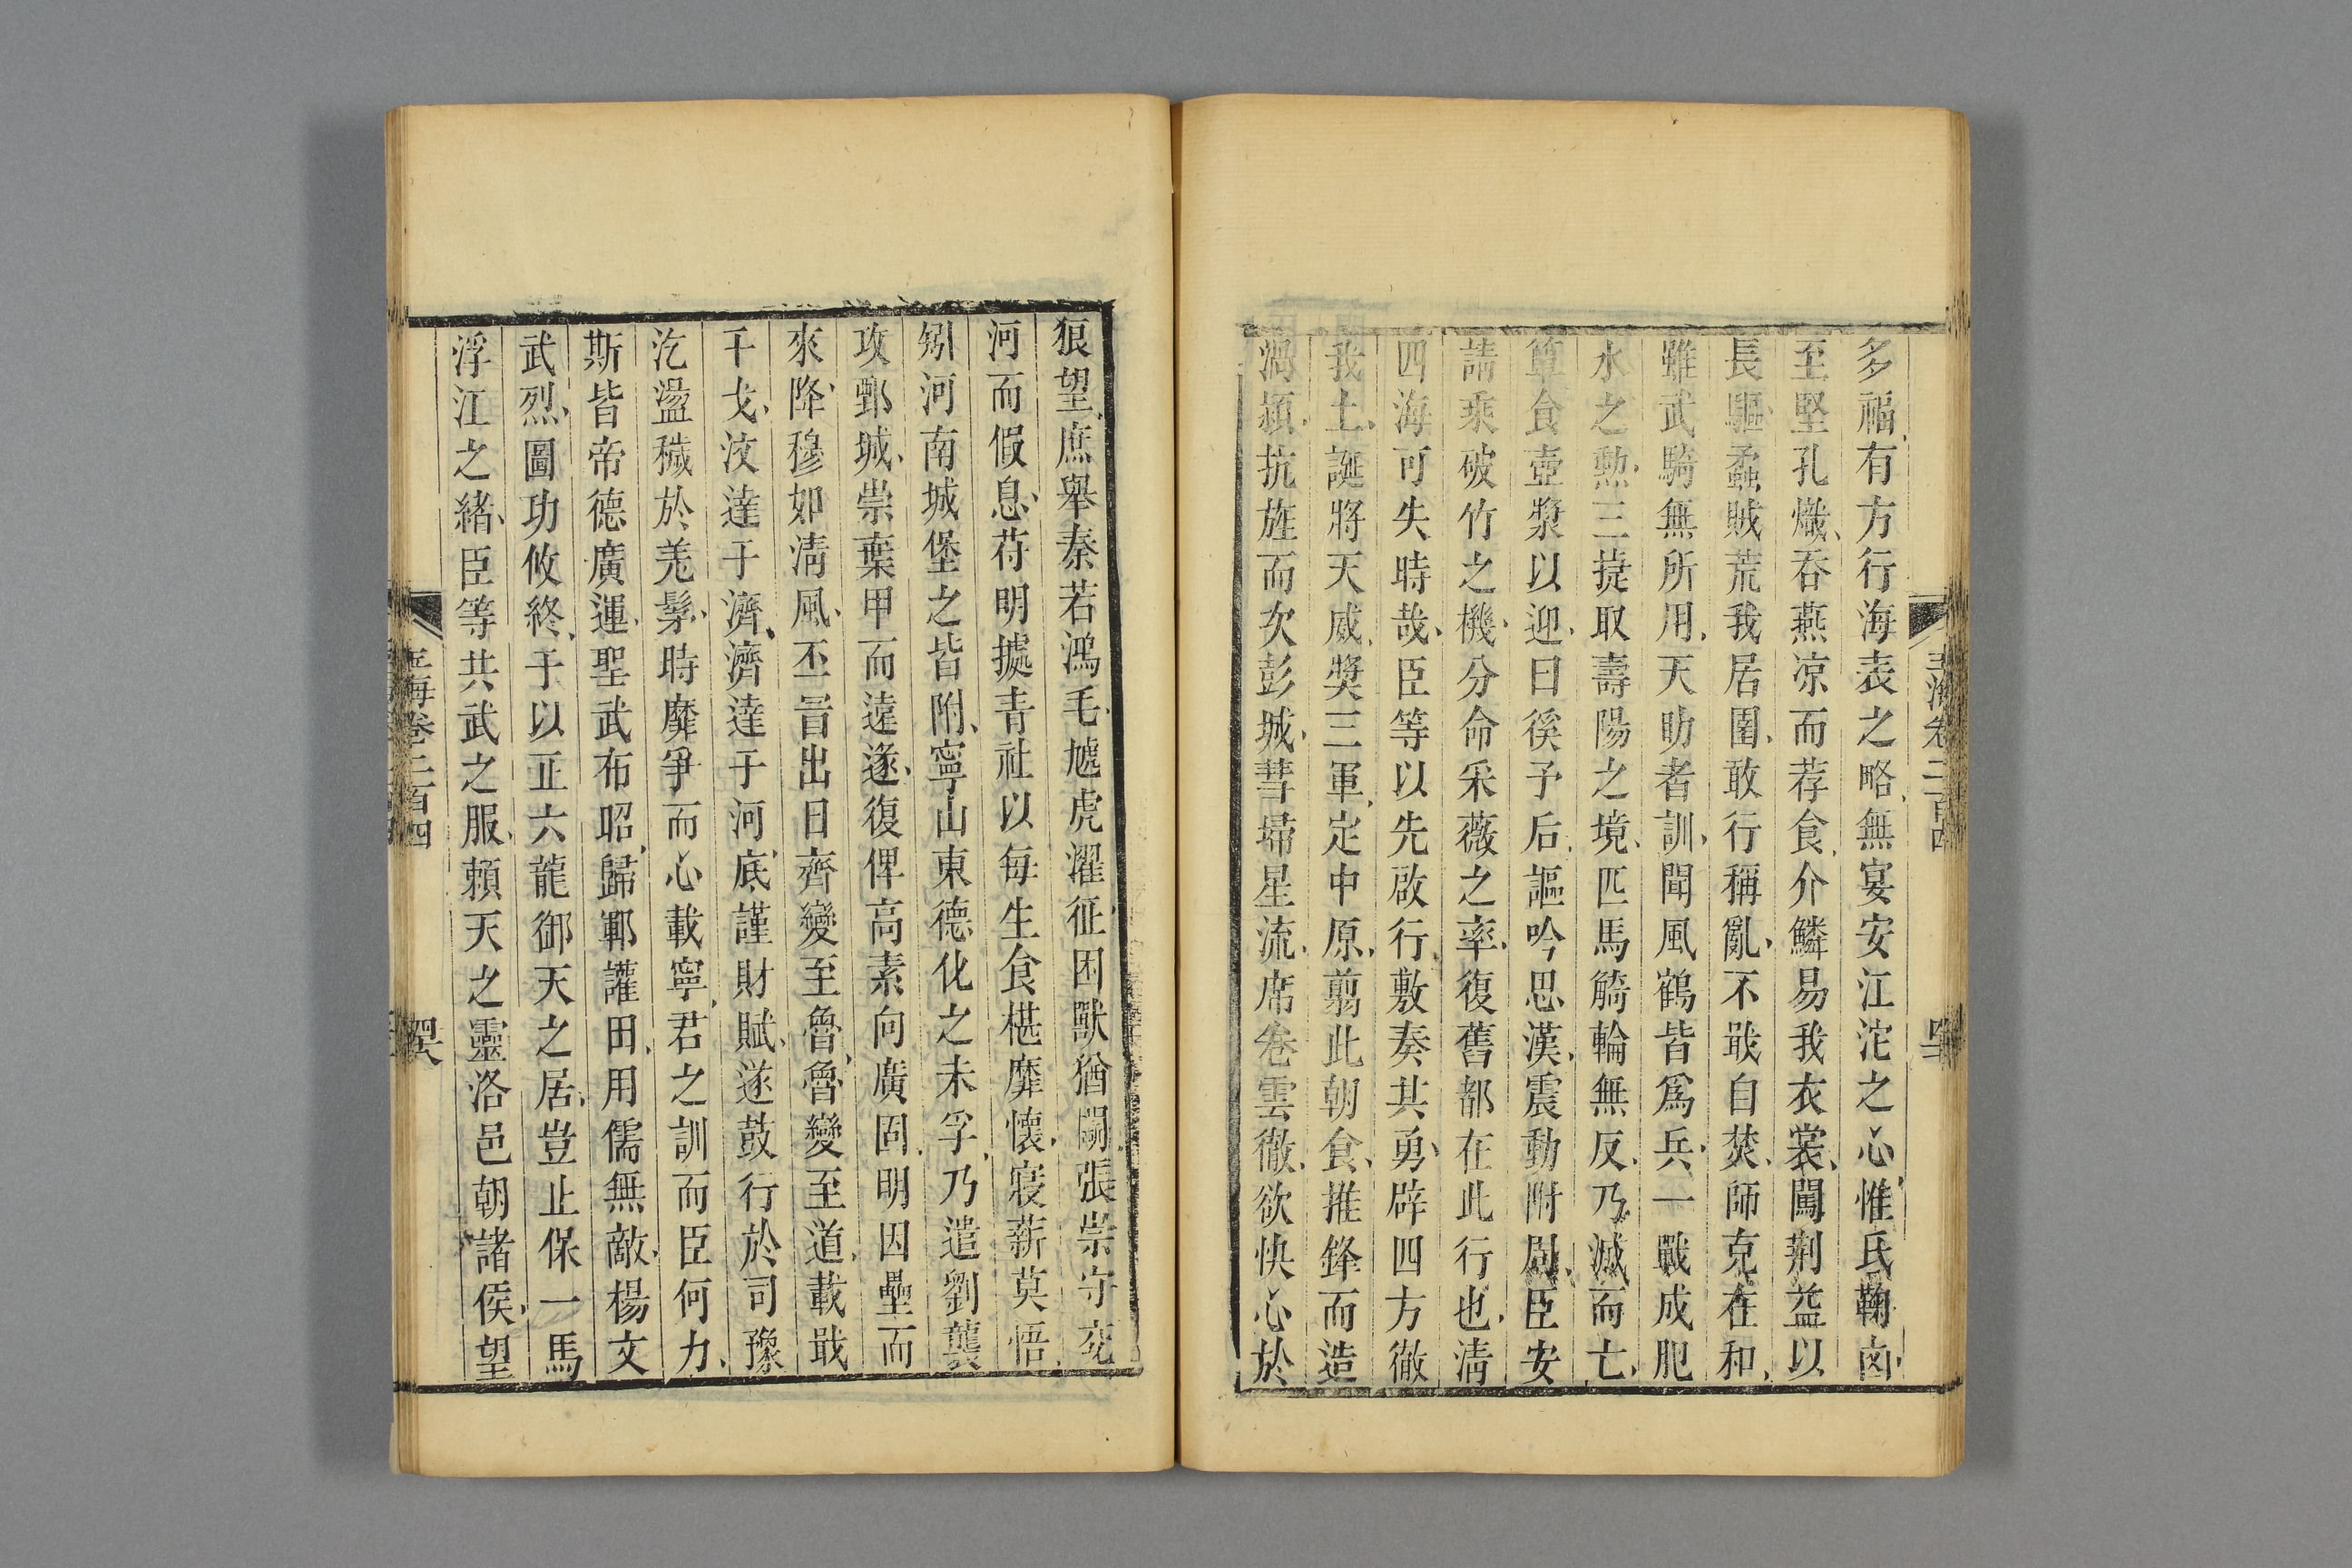 玉海卷二百四
多福有方行海表之略無宴安江沱之心惟氐鞠凶
至堅孔熾吞燕凉而荐食介鱗易我衣裳闖荆益以
長驅蟊賊荒我居圉敢行稱亂不戢自焚師克在和
雖武騎無所用天助者訓聞風鶴皆爲兵一戰成肥
水之勲三捷取壽陽之境匹馬觭輪無反乃滅而亡
簞食壺漿以迎曰徯予后謳吟思漢震動附周臣安
請乘破竹之機分命采薇之率復舊都在此行也清
四海可失時哉臣等以先啟行敷奏其勇辟四方徹
我土誕將天威獎三軍定中原翦此朝食推鋒而造
渦潁抗旌而次彭城彗埽星流席卷雲徹欲快心於
狼望庶舉秦若鴻毛虓虎濯征困獸猶鬭張崇守兗
河而假息苻明據青社以每生食椹靡懷寢薪莫悟
矧河南城堡之皆附寧山東德化之未孚乃遣劉襲
攻鄄城崇棄甲而遠遂復俾高素向廣固明因壘而
來降穆如清風丕冒出日齊變至魯魯變至道載戢
干戈汶達于濟濟達于河底謹財賦遂鼓行於司豫
汔盪穢於羌髳時靡爭而心載寧君之訓而臣何力
斯皆帝德廣運聖武布昭歸鄆讙田用儒無敵楊文
武烈圖功攸終于以正六龍御天之居豈止保一馬
浮江之緒臣等共武之服賴天之靈洛邑朝諸侯望
玉海卷二百四